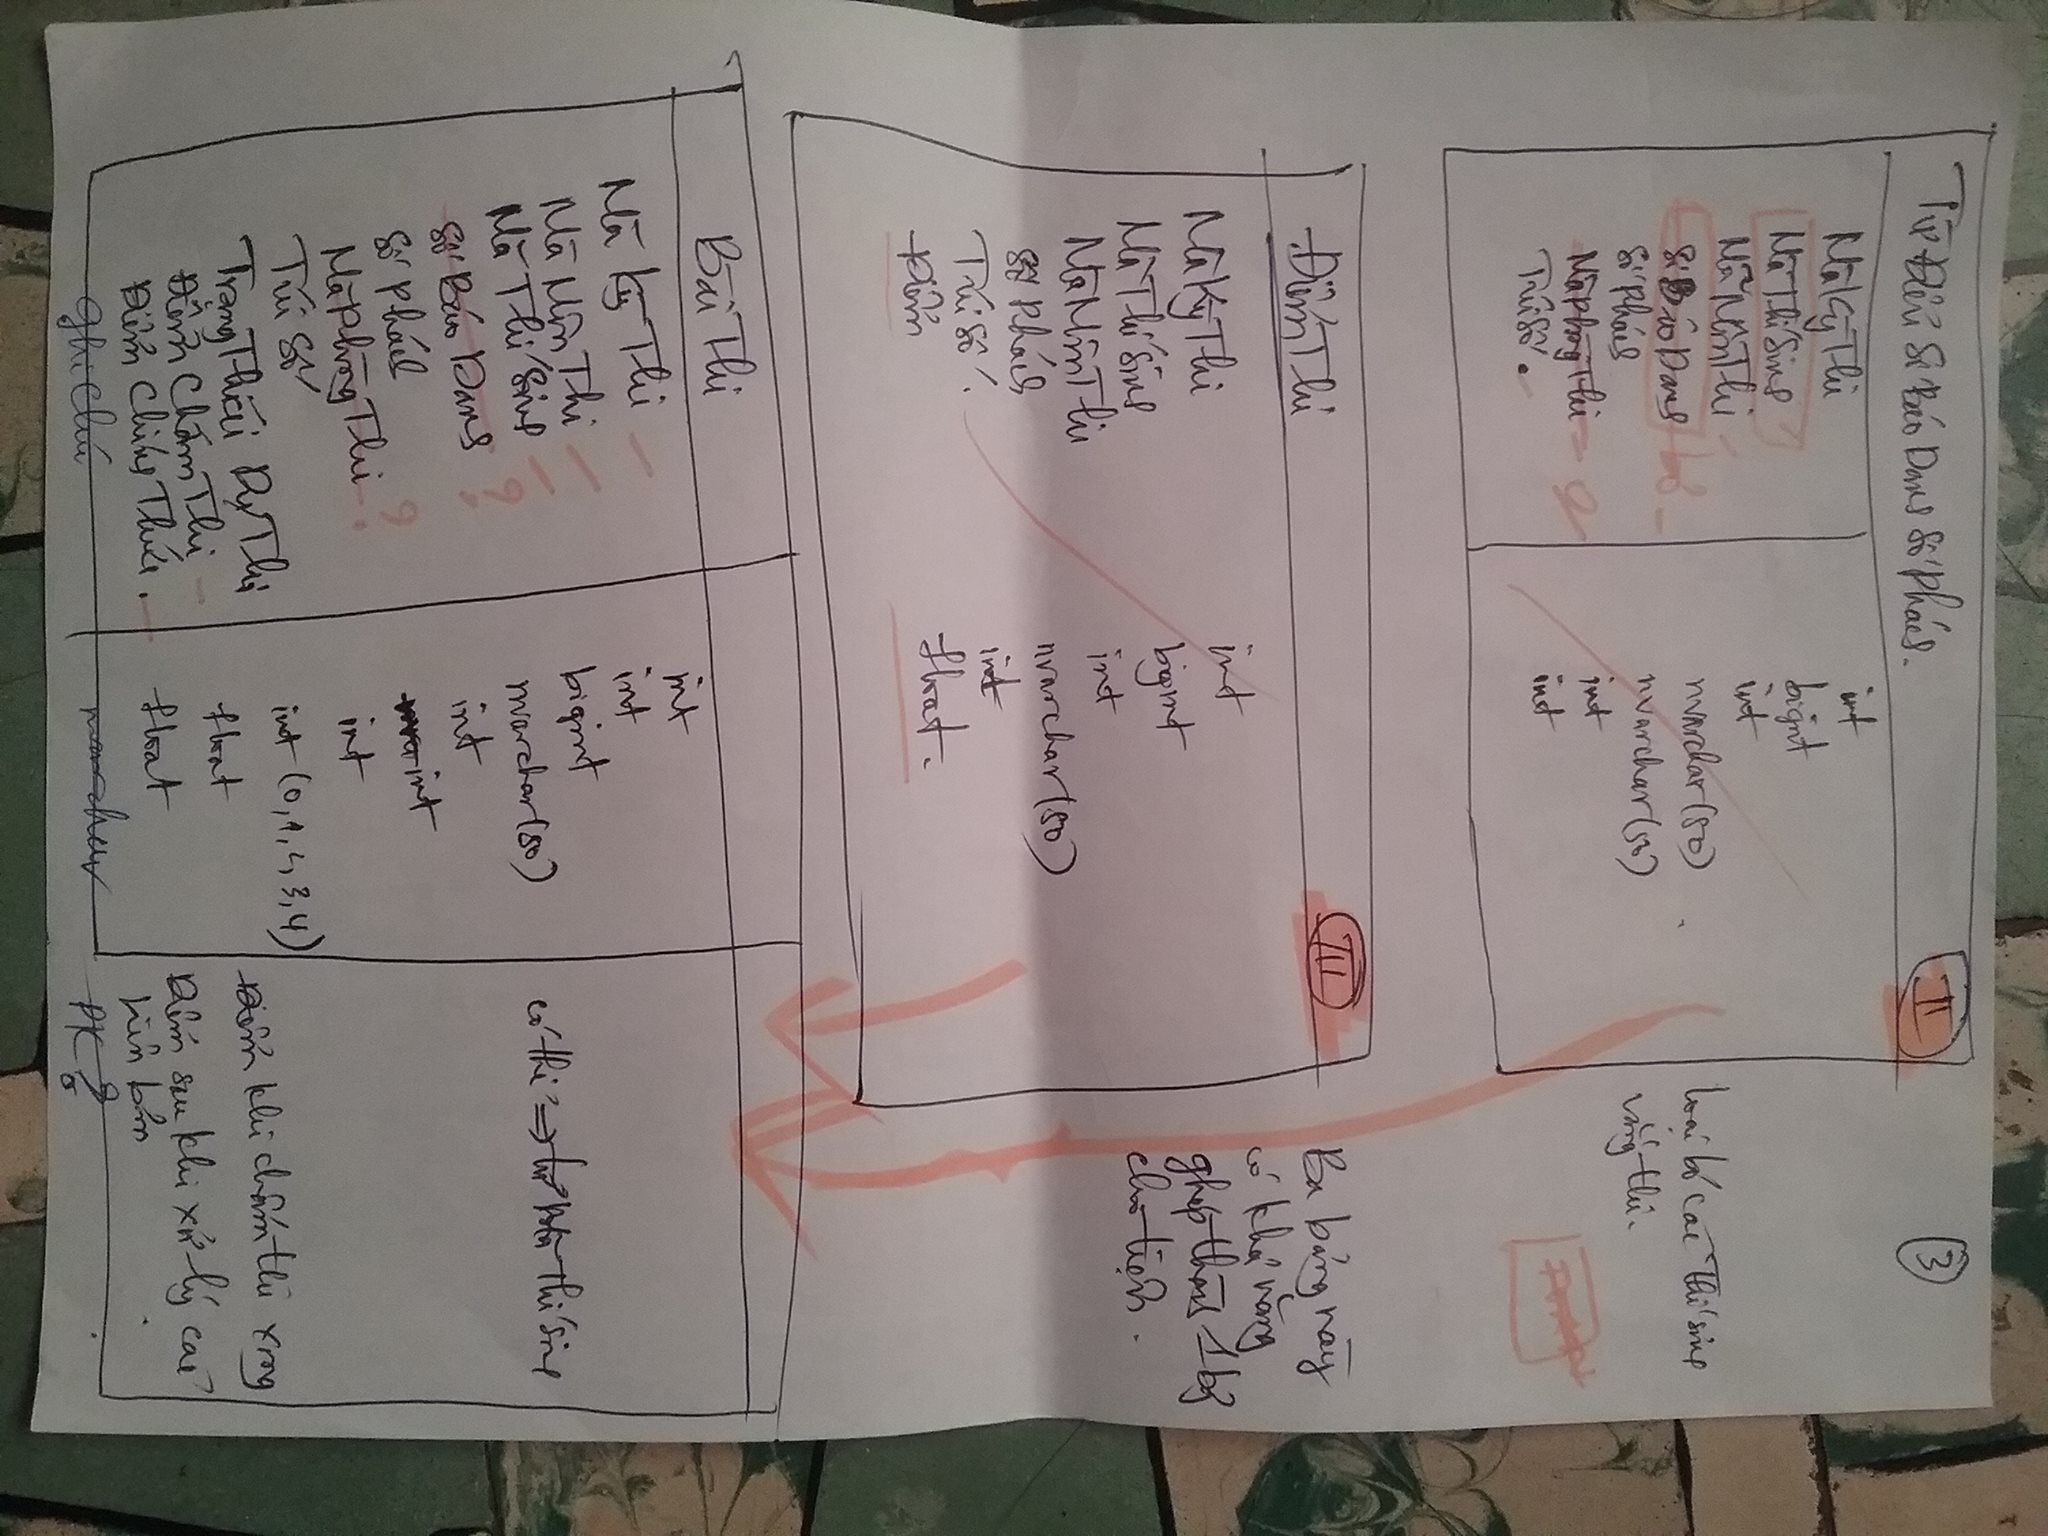 Từ Điển Số Báo Danh Số Phách.
II
3
Mã Kỳ Thi
int
Mã Thí Sinh
bigint
Mã Môn Thi
int
Số Báo Danh
nvarchar(50)
Số Phách
nvarchar(50)
Mã Phòng Thi
int
Túi Số.
int
Loại bỏ các Thí sinh
vắng thi.
Điểm Thi
III
Mã Kỳ Thi
int
Mã Thí Sinh
bigint
Mã Môn Thi
int
Số Phách
nvarchar(50)
Túi Số.
int
Điểm
float.
Ba bảng này
có khả năng
ghép thành 1 bg
cho tiện.
Bài Thi
Mã Kỳ Thi
int
Mã Môn Thi
int
Mã Thí Sinh ?
bigint
Số Báo Danh
nvarchar(50)
Số Phách
int
Mã Phòng Thi ?
int
Túi Số
int
Trạng Thái Dự Thi
int (0,1,2,3,4)
Điểm Chấm Thi
float
Điểm Chính Thức.
float
ghi chú
có thi
Mã Thí Sinh
Điểm khi chấm thi xong
Điểm sau khi xử lý các
biên bản
PK ?